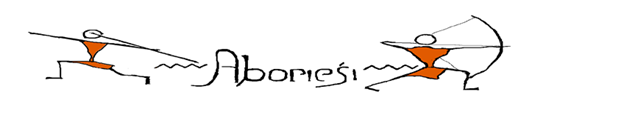 Aborieśi